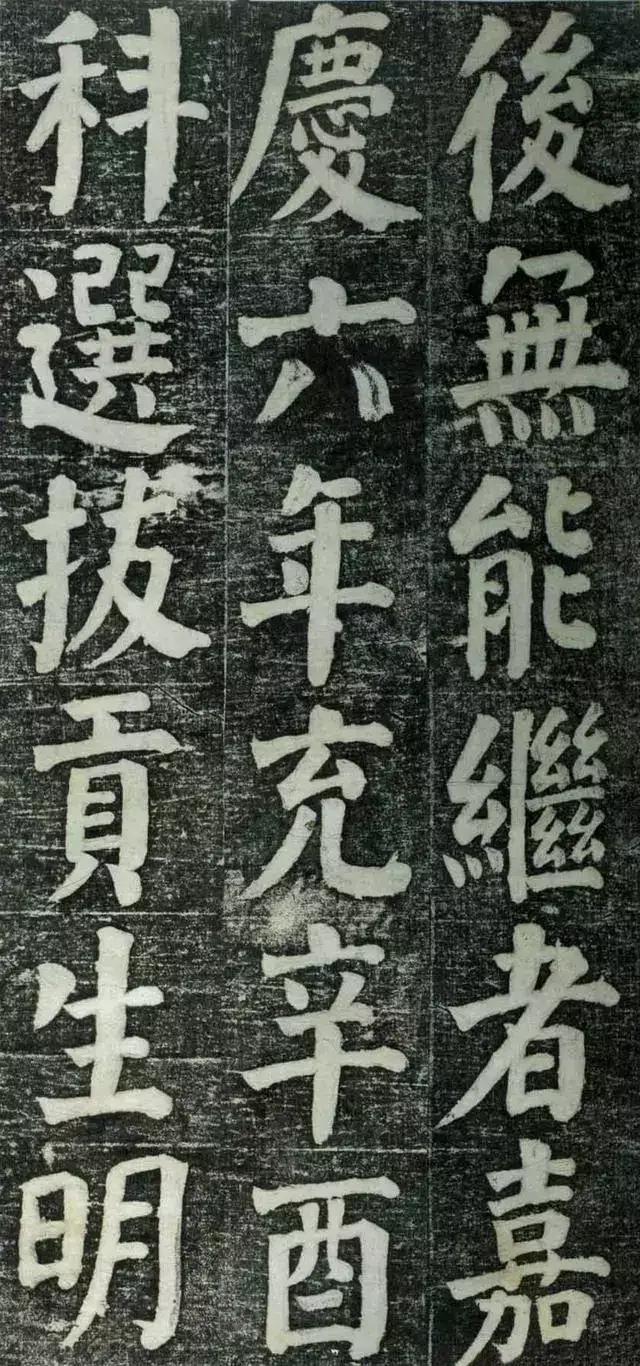 後無能繼者嘉
慶六年充辛酉
科選拔貢生明